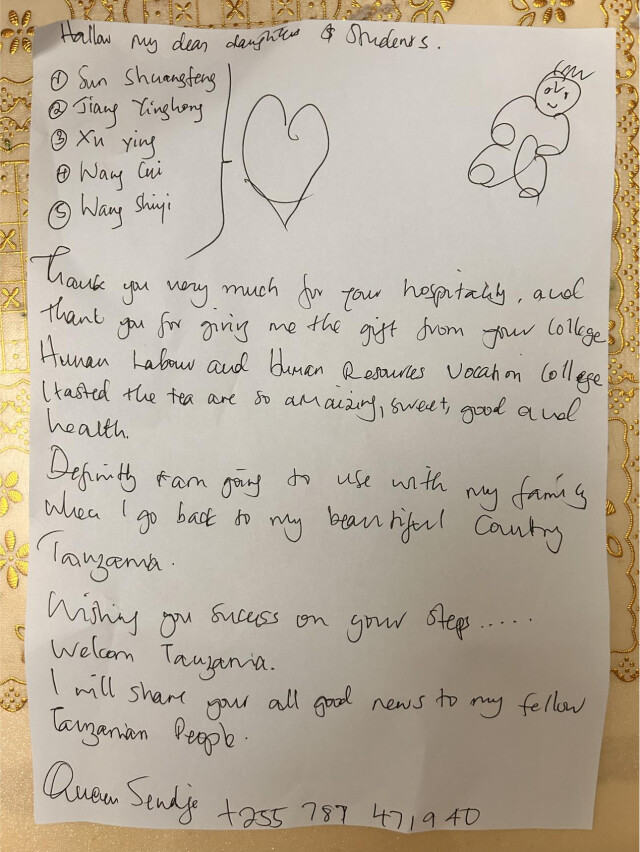 Hallow my dear daughters & Students.
① Sun Shuangfeng
② Jiang Yinghong
③ Xu ying
④ Wang Cui
⑤ Wang Shiyi
Thank you very much for your hospitality, and
thank you for giving me the gift from your College
Hunan Labour and Human Resources Vocation College
I tasted the tea are so amaizing, sweet, good and
health.
Definitly I am going to use with my family
when I go back to my beautiful Country
Tanzania.
Wishing you sucess on your steps.....
Welcom Tanzania.
I will share your all good news to my fellow
Tanzanian People.
Queen Sendje +255 787 471940